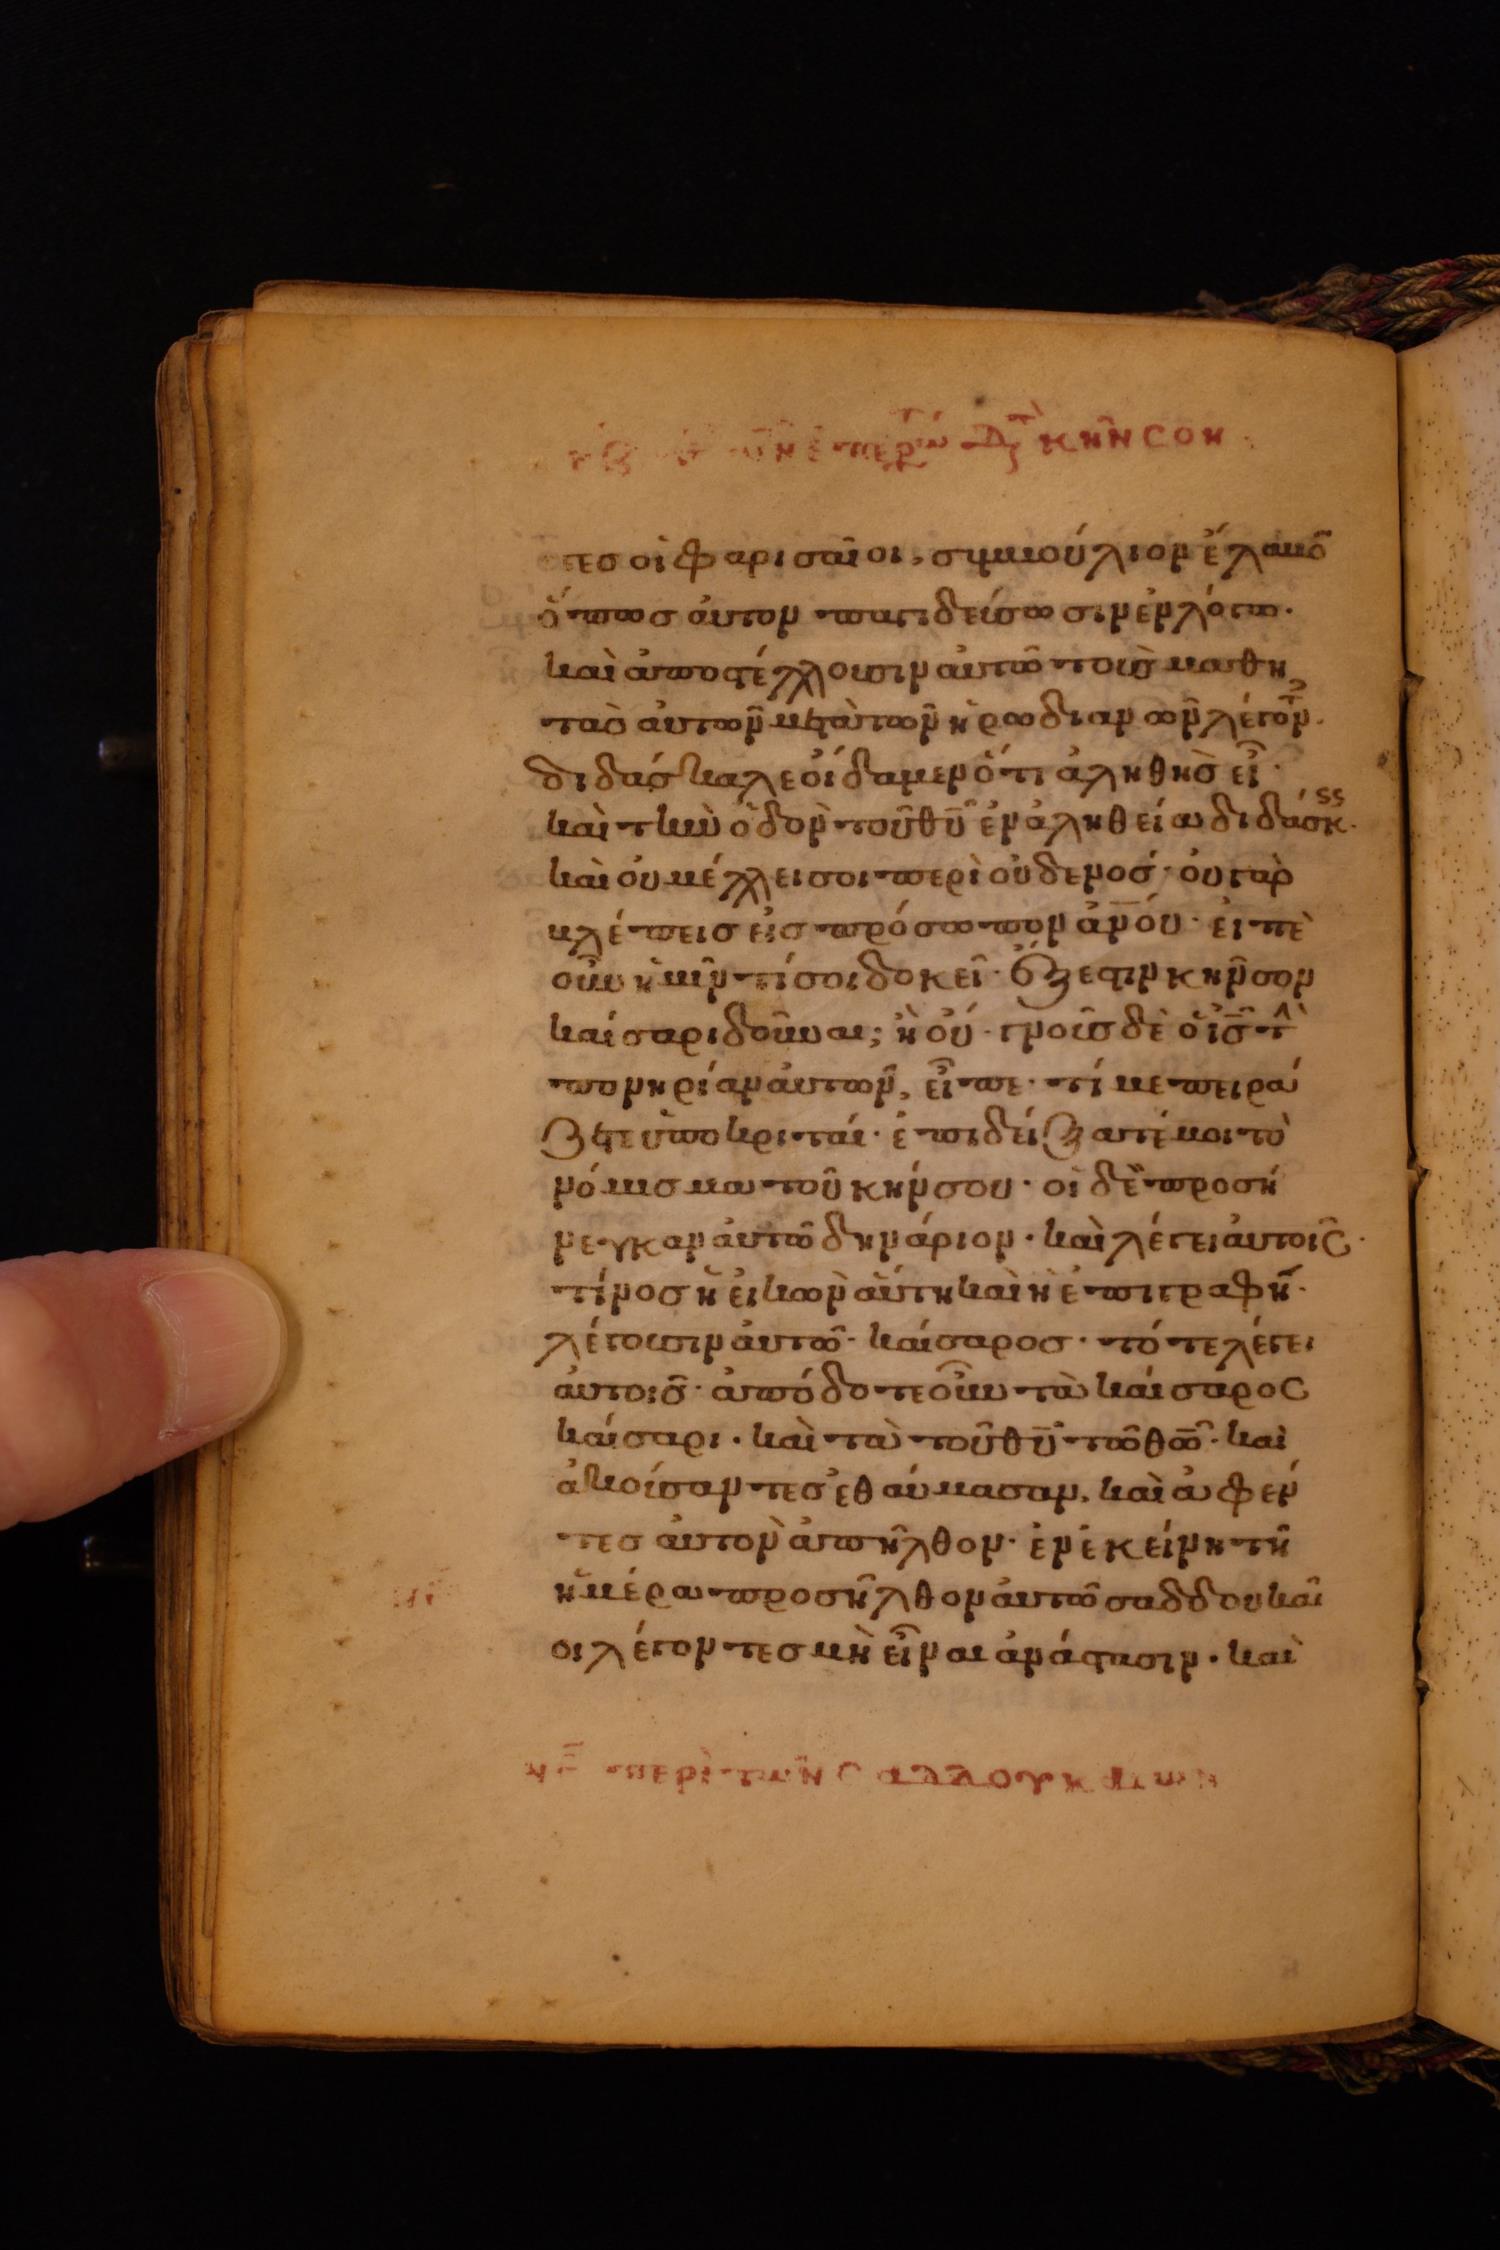 κῆνσον
τες οἱ φαρισαῖοι, συμβούλιον ἔλαβο
ὅπως αὐτον παγιδεύσωσιν ἐν λόγω·
καὶ ἀποστέλλουσιν αὐτῶ τοὺς μαθη
τὰς αὐτῶν μετὰ τῶν ἡρωδιανῶν λέγοντ
διδάσκαλε οἴδαμεν ὅτι ἀληθὴς εἶ·
καὶ τὴν ὁδὸν τοῦ θυ ἐν ἀληθεία διδάσκ
καὶ οὐ μέλλει σοι περὶ οὐδενος· οὐ γὰρ
βλέπεις εἰς πρόσωπον ανου· εἰπὲ
οὖν ἡμῖν τί σοι δοκεῖ· ἔξεστιν κῆνσον
καίσαρι δοῦναι; ἢ οὔ· γνοὺς δὲ ὁ ις τ
πονηρίαν αὐτῶν, εἶπε· τί με πειρά
ζετε ὑποκριταί· ἐπιδείξατέ μοι τὸ
νόμισμα τοῦ κήνσου· οἱ δὲ προσή
νεγκαν αὐτῶ δηνάριον· καὶ λέγει αὐτοῖς·
τίνος ἡ εἰκὼν αὕτη καὶ ἡ ἐπιγραφή·
λέγουσιν αὐτῶ· καίσαρος· τότε λέγει
αὐτοῖς· ἀπόδοτε οὖν τὰ καίσαρος
καίσαρι· καὶ τὰ τοῦ θυ τῶ θω· καὶ
ἀκούσαντες ἐθαύμασαν, καὶ ἀφέν
τες αὐτὸν ἀπῆλθον· ἐν ἐκείνη τῆ
ἡμέρα προσῆλθον αὐτῶ σαδδουκαῖ
οι λέγοντες μὴ εἶναι ἀνάστασιν· καὶ
περὶ τῶν σαδδουκαίων